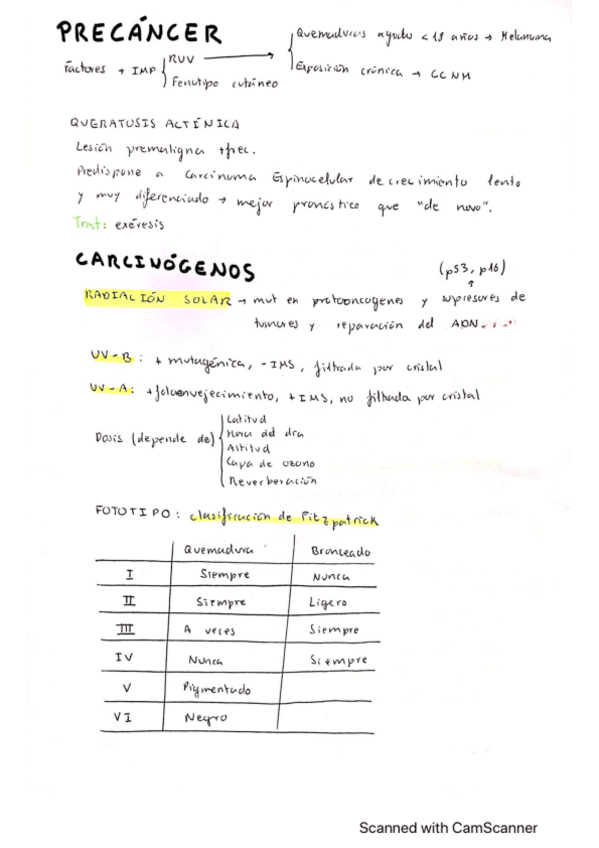 PRECÁNCER
Factores + IMP { RUV → { Quemaduras agudas < 18 años → Melanoma
Fenotipo cutáneo
Exposición crónica → CCNM
QUERATOSIS ACTÍNICA
Lesión premaligna +frec.
Predispone a carcinoma Espinocelular de crecimiento lento
y muy diferenciado → mejor pronóstico que "de novo".
Trat: exéresis
CARCINÓGENOS
(p53, p16)
↑
RADIACIÓN SOLAR → mut en protooncogenes y supresores de
tumores y reparación del ADN...
UV-B: + mutagénica, - IMS, filtrada por cristal
UV-A: +fotoenvejecimiento, + IMS, no filtrada por cristal
Dosis (depende de) { Latitud
Hora del día
Altitud
Capa de ozono
Reverberación
FOTOTIPO: clasificación de Fitzpatrick
Quemadura Bronceado
I Siempre Nunca
II Siempre Ligero
III A veces Siempre
IV Nunca Siempre
V Pigmentado
VI Negro
Scanned with CamScanner